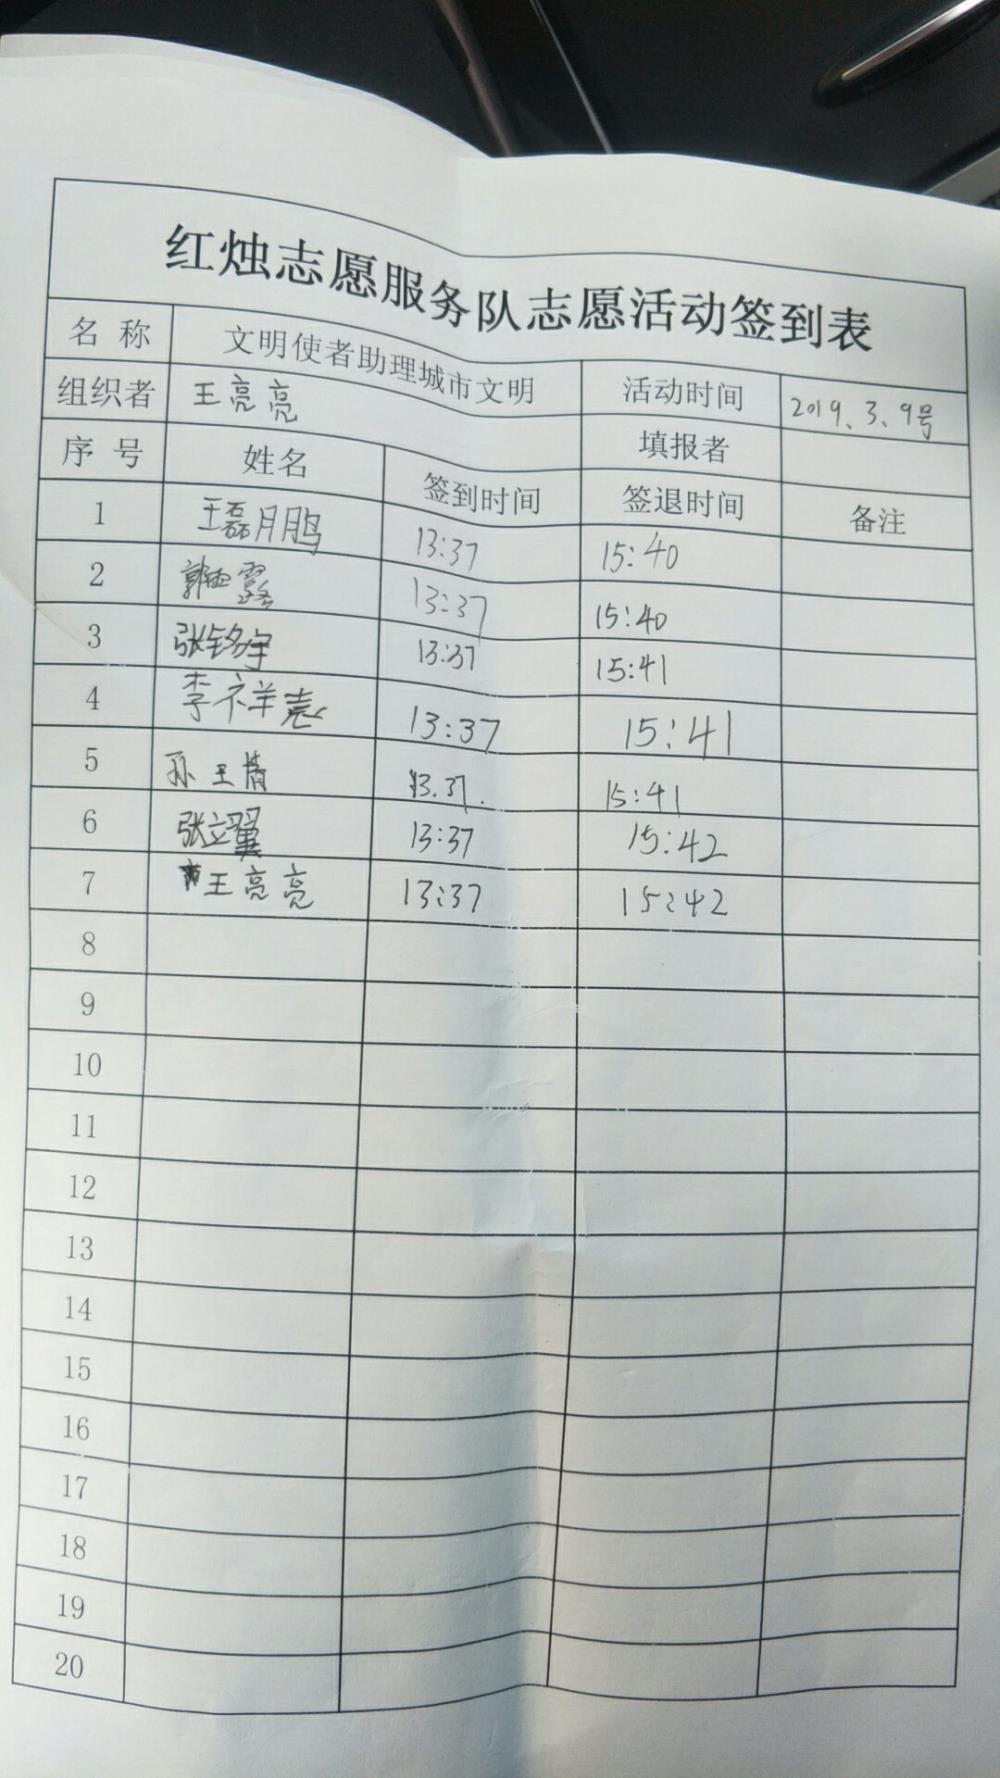 红烛志愿服务队志愿活动签到表
名 称 文明使者助理城市文明 活动时间 2019、3、9号
组织者 王亮亮 填报者
序 号 姓名 签到时间 签退时间 备注
1 王磊鹏 13:37 15:40
2 郭 露 13:37 15:40
3 张铭宇 13:37 15:41
4 李 13:37 15:41
5 孙王 13.37. 15:41
6 张立翼 13:37 15:42
7 王亮亮 13:37 15:42
8
9
10
11
12
13
14
15
16
17
18
19
20